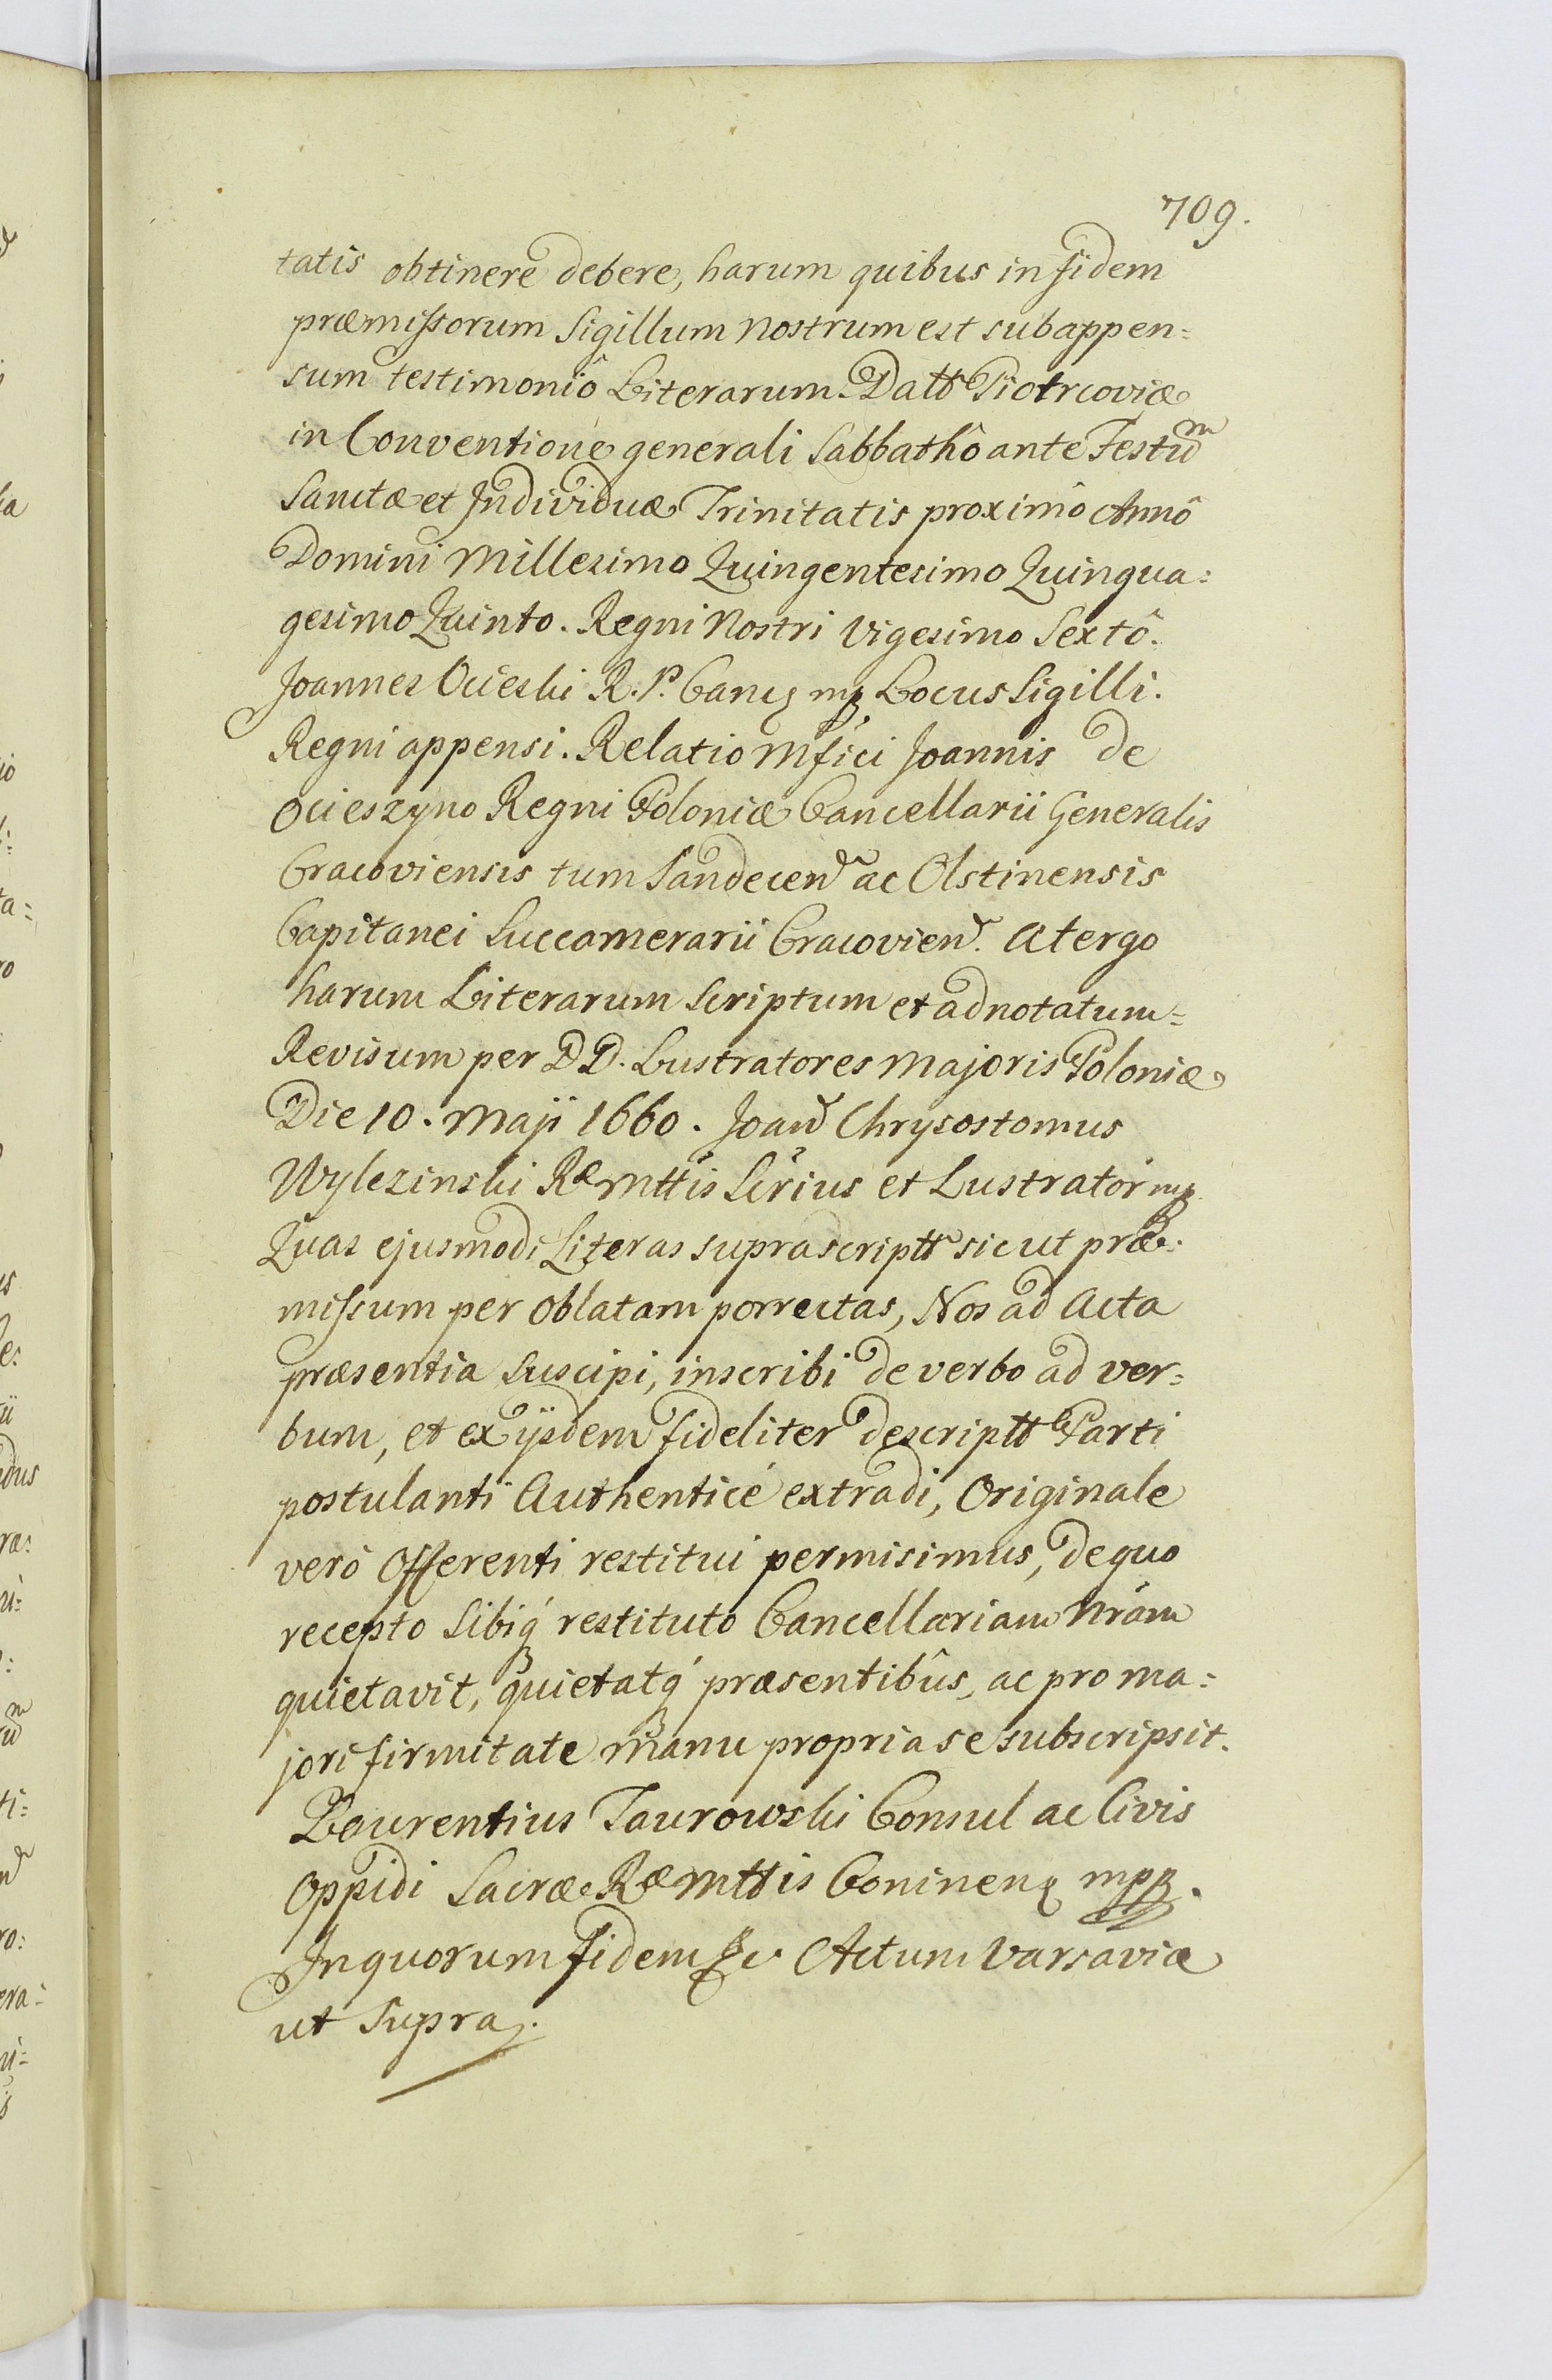 709.
tatis obtinere debere, harum quibus in fidem
præmissorum Sigillum nostrum est subappen=
sum testimoniô Literarum. Datt Piotrcoviæ
in Conventione generali Sabbathô ante Festum
Sanctæ et Individuæ Trinitatis proximô Annô
Domini Millesimo Quingentesimo Quinqua=
gesimo Quinto. Regni Nostri Vigesimo Sextô.
Joannes Ocieski R. P. Canc mp Locus Sigilli.
Regni appensi. Relatio Mfici Joannis de
Ocieszyno Regni Poloniæ Cancellarii Generalis
Cracoviensis tum Sandecen ac Olstinensis
Capitanei Succamerarii Cracovien. A tergo
harum Literarum scriptum et adnotatum=
Revisum per DD. Lustratores Majoris Poloniæ
Die 10. Maji 1660. Joan Chrysostomus
Wylezinski Ræ Mttis Scrius et Lustrator mp
Quas ejusmodi Literas suprascriptt sicut præ=
missum per oblatam porrectas, Nos ad Acta
præsentia suscipi, inscribi de verbo ad ver=
bum, et ex ijsdem fideliter descriptt Parti
postulanti Authenticé extradi, Originale
verò Offerenti restitui permisimus, de quo
recepto sibiq́ restituto Cancellariam Nram
quietavit, quietatq́ præsentibûs, ac pro ma=
jori firmitate manu propria se subscripsit.
Laurentius Taurowski Consul ac Civis
Oppidi Sacræ Ræ Mttis Coninen mpp.
In quorum fidem &c. Actum Varsaviæ
ut supra.